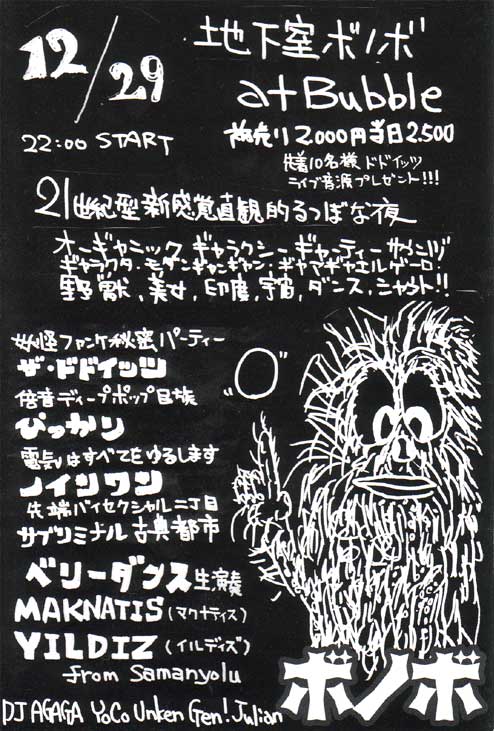 12/29
地下室ボノボ
at Bubble
22:00 START
前売り2000円当日2,500
先着10名様ドドイッツ
ライブ音源プレゼント!!!
21世紀型新感覚直観的るつぼな夜
オーギャミックギャラクシーギャーティーサイハヅ
ギャラクタ・モダンギャンギャン・ギャマギャエルゲーロ
野獣,美女,印度,宇宙,ダンス,シャウト!!
妖怪ファンケ秘密パーティー
ザ・ドドイッツ
倍音ディープポップ民族
ぴっかり
"O"
電気はすべてをゆるします
ノインワン
先端バイセクシャル二丁目
サブリミナル古典都市
ベリーダンス生演奏
MAKNATIS(マクナティス)
YILDIZ(イルディズ)
from Samanyolu
ボノボ
DJ AGAGA YoCo Unken Gen! Julian